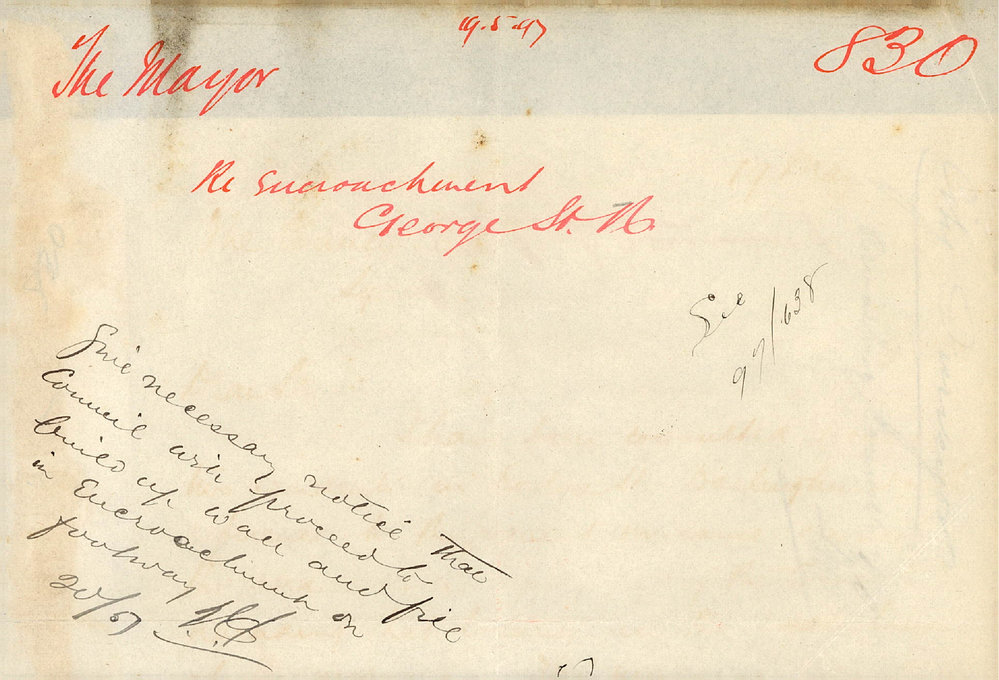 19.5.97
830
The Mayor
Re Encroachment
George St. N
See
97/638
Give necessary notice that
Council will proceed to
build up wall and fill
in Encroachment on
footway
20/5/